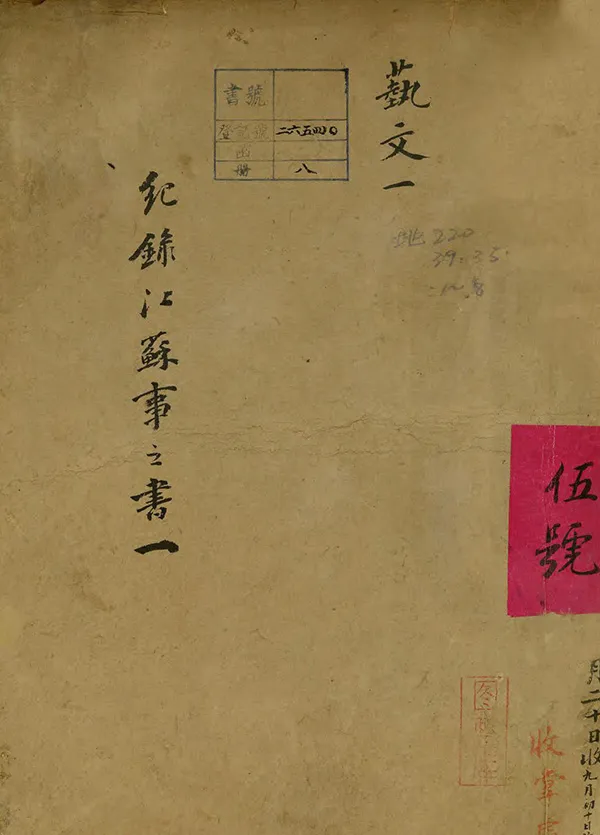 藝文一
書號
登記號 二六五四〇
函
冊 八
地 220
39.35.
紀錄江蘇事之書一
伍號
月二十日收
九月初十日
收掌